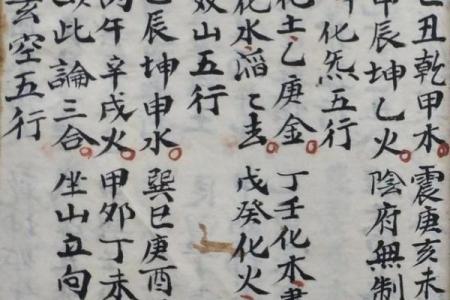 丑乾甲木。震庚亥未
甲辰坤乙火。陰府無制
化炁五行
化土乙庚金。丁壬化木
化水滔々去。戊癸化火
双山五行
辰坤申水。巽巳庚酉
丙午辛戌火。甲卯丁未
此論三合。坐山立向
玄空五行